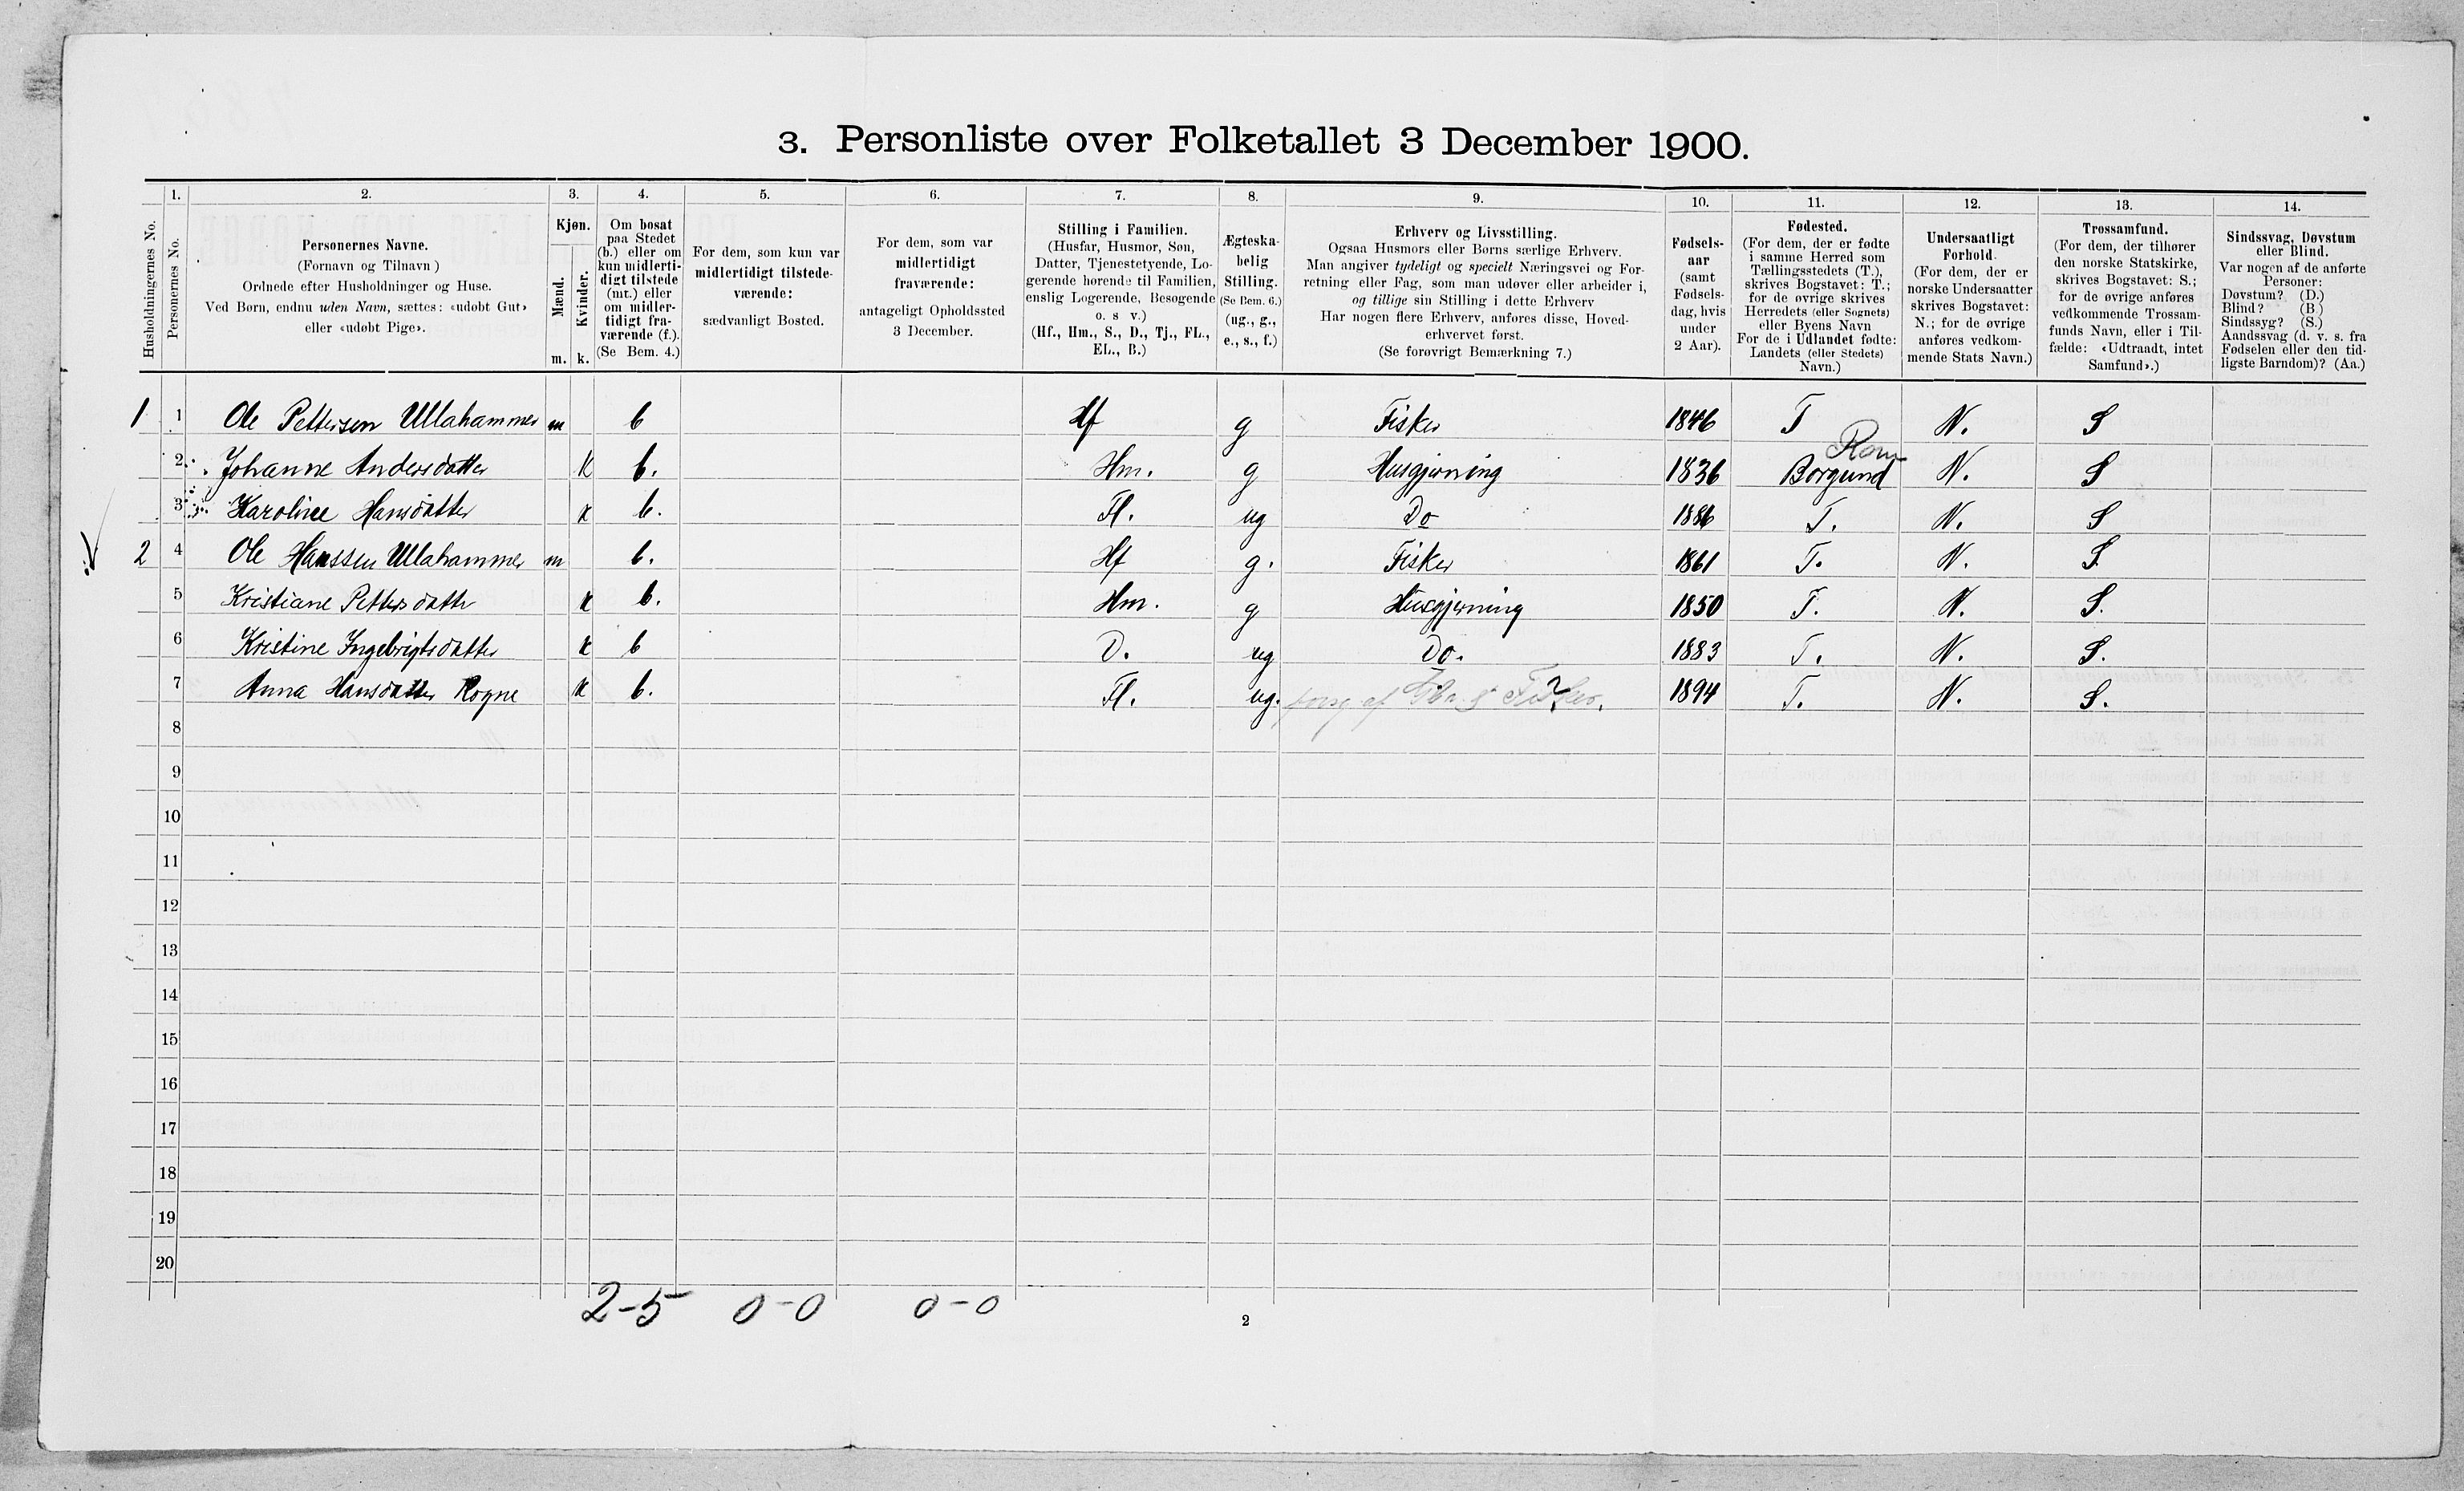 3. Personliste over Folketallet 3 December 1900.
Husholdningernes No.
1.
Personernes No.
2.
Personernes Navne.
(Fornavn og Tilnavn)
Ordnede efter Husholdninger og Huse.
Ved Børn, endnu uden Navn, sættes: «udøbt Gut»
eller «udøbt Pige».
3.
Kjøn.
Mænd.
Kvinder.
m. k.
4.
Om bosat
paa Stedet
(b.) eller om
kun midlerti-
digt tilstede
(mt.) eller
om midler-
tidigt fra-
værende (f.).
(Se Bem. 4.)
5.
For dem, som kun var
midlertidigt tilstede-
værende:
sædvanligt Bosted.
6.
For dem, som var
midlertidigt
fraværende:
antageligt Opholdssted
3 December.
7.
Stilling i Familien.
(Husfar, Husmor, Søn,
Datter, Tjenestetyende, Lo-
gerende hørende til Familien,
enslig Logerende, Besøgende
o. s v.)
(Hf., Hm., S., D., Tj., FL.,
EL., B.)
8.
Ægteska-
belig
Stilling.
(Se Bem. 6.)
(ug., g.,
e., s., f.)
9.
Erhverv og Livsstilling.
Ogsaa Husmors eller Børns særlige Erhverv.
Man angiver tydeligt og specielt Næringsvei og For-
retning eller Fag, som man udøver eller arbeider i,
og tillige sin Stilling i dette Erhverv
Har nogen flere Erhverv, anføres disse, Hoved-
erhvervet først.
(Se forøvrigt Bemærkning 7.)
10.
Fødsels-
aar
(samt
Fødsels-
dag, hvis
under
2 Aar).
11.
Fødested.
(For dem, der er fødte
i samme Herred som
Tællingsstedets (T.),
skrives Bogstavet: T.;
for de øvrige skrives
Herredets (eller Sognets)
eller Byens Navn
For de i Udlandet fødte:
Landets (eller Stedets)
Navn.)
12.
Undersaatligt
Forhold.
(For dem, der er
norske Undersaatter
skrives Bogstavet:
N.; for de øvrige
anføres vedkom-
mende Stats Navn.)
13.
Trossamfund.
(For dem, der tilhører
den norske Statskirke,
skrives Bogstavet: S.;
for de øvrige anføres
vedkommende Trossam-
funds Navn, eller i Til-
fælde: «Udtraadt, intet
Samfund».)
14.
Sindssvag, Døvstum
eller Blind.
Var nogen af de anførte
Personer:
Døvstum? (D.)
Blind? (B)
Sindssyg? (S.)
Aandssvag (d. v. s. fra
Fødselen eller den tid-
ligste Barndom)? (Aa.)
1 1 Ole Pettersen Ullahammer m b Hf g Fisker 1846 T N. S
Rom
2 Johanne Andersdatter k b. Hm. g Husgjerning 1836 Borgund N. S
3 Karoline Hansdatter k b. Fl. ug Do 1886 T. N. S
2 4 Ole Hanssen Ullahammer m b. Hf g. Fisker 1861 T. N. S.
5 Kristiane Pettersdatter k b. Hm. g Husgjerning 1850 T. N. S.
6 Kristine Ingebrigtsdatter k b D. ug Do. 1883 T. N. S.
7 Anna Hansdatter Rogne k b. Fl. ug. forsg af Fisker. 1894 T. N. S.
8
9
10
11
12
13
14
15
16
17
18
19
20
2-5 0-0 0-0
2